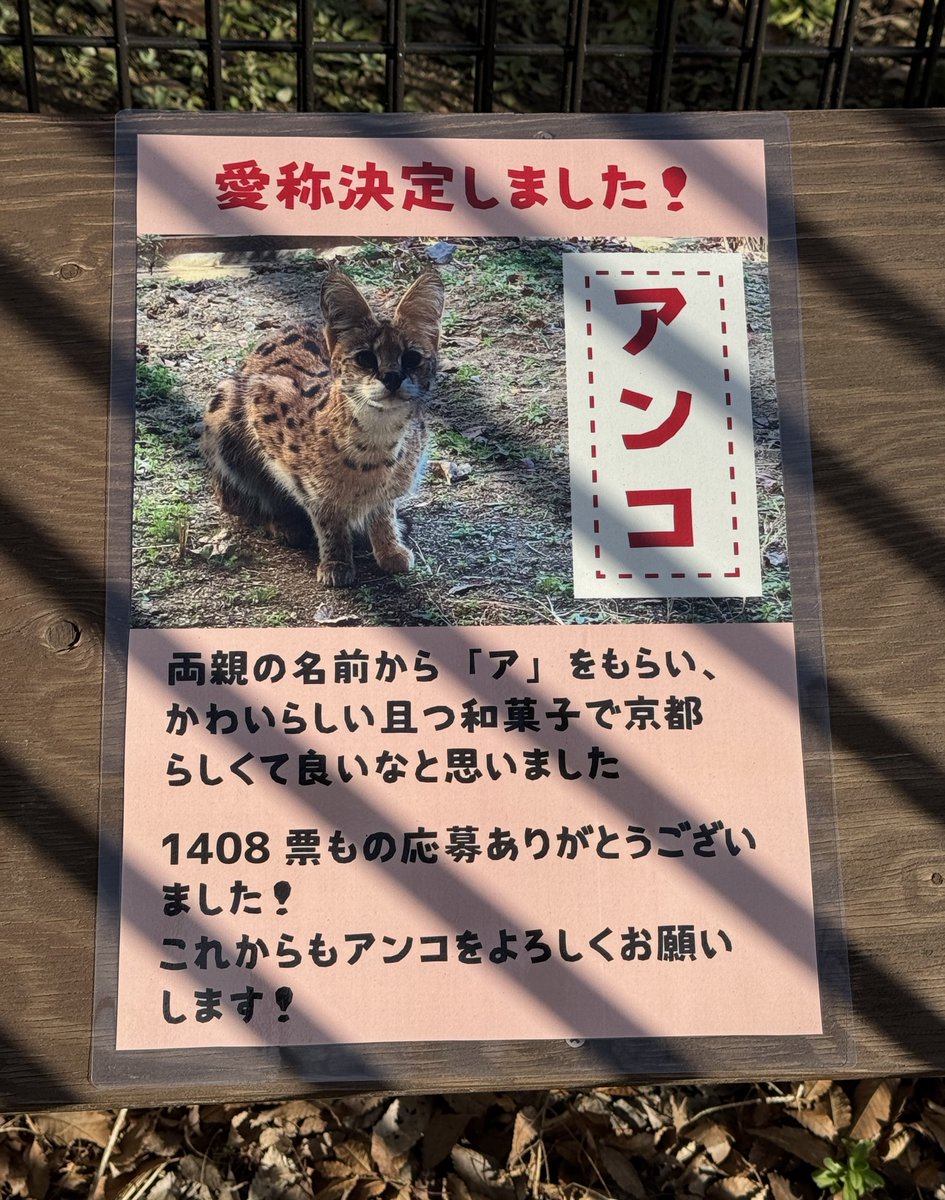 愛称決定しました！
アンコ
両親の名前から「ア」をもらい、
かわいらしい且つ和菓子で京都
らしくて良いなと思いました
1408 票もの応募ありがとうござい
ました！
これからもアンコをよろしくお願い
します！